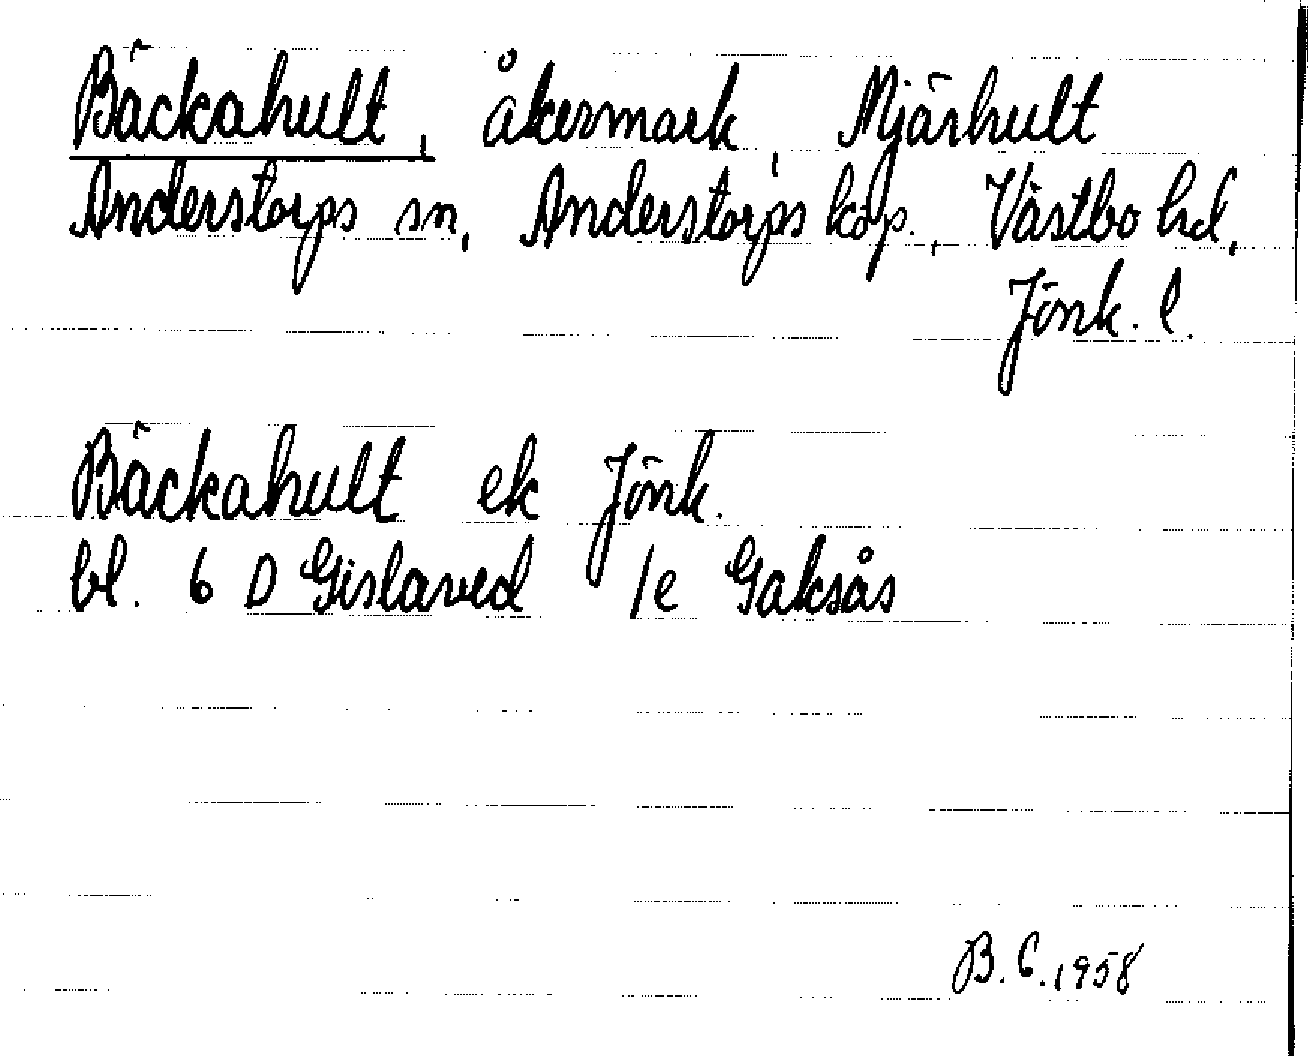 Bäckahult, åkermark, Mjärhult
Anderstorps sn, Anderstorps köp., Västbo hd,
Jönk. l.
Bäckahult ek Jönk.
bl. 6 D Gislaved 1e Gaksås
B. E. 1958